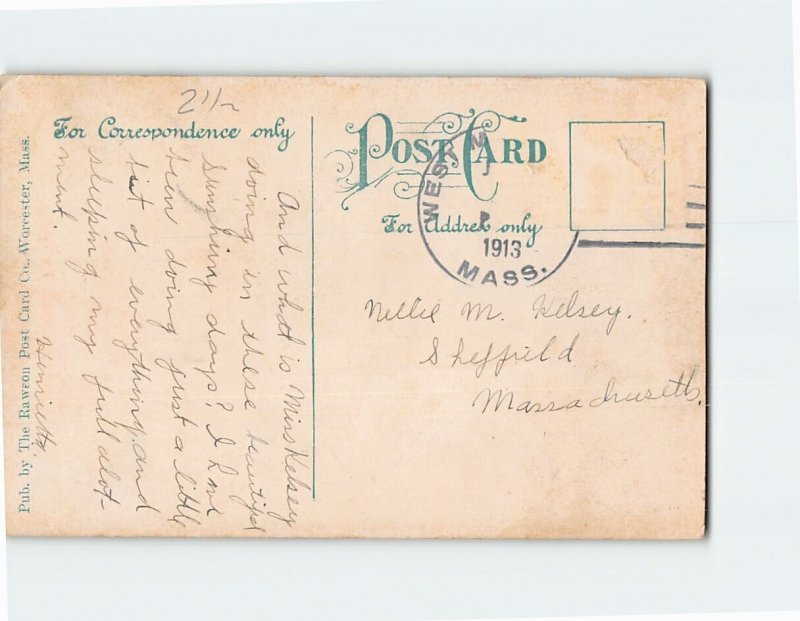 2 1/2
For Correspondence only
POST CARD
For Address only
WEST
1913
MASS.
Nellie M. Kelsey.
Sheffield
Massachusetts.
And what is Miss Kelsey
doing in these beautiful
Sunshiny days? I have
been doing just a little
bit of everything, and
sleeping my full alot-
ment.
Henrietta.
Pub. by The Rawson Post Card Co., Worcester, Mass.